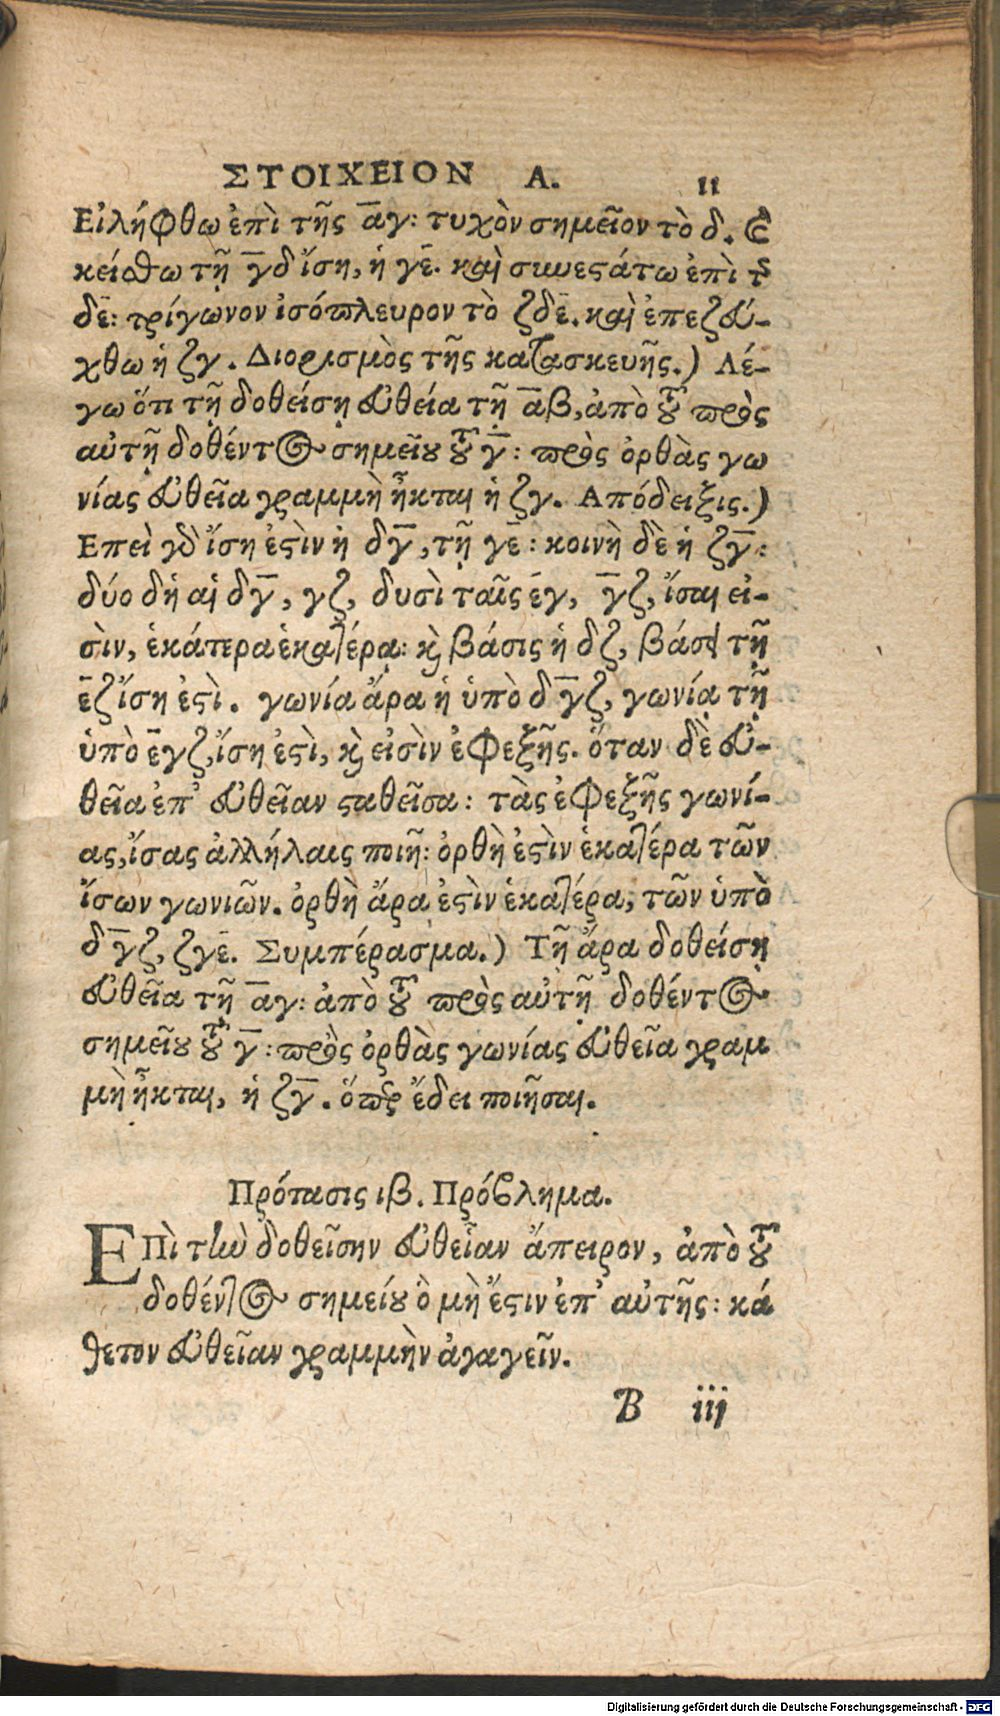 ΣΤΟΙΧΕΙΟΝ Α. 11
Εἰλήφθω ἐπὶ τῆς α̅γ: τυχὸν σημεῖον τὸ δ. ϗ
κείσθω τῇ γ̅δ ἴση, ἡ γε̅. καὶ συνεστάτω ἐπὶ τῆς
δε̅: τρίγωνον ἰσόπλευρον τὸ ζδε̅. καὶ ἐπεζεύ-
χθω ἡ ζγ. Διορισμὸς τῆς κατασκευῆς.) Λέ-
γω ὅτι τῇ δοθείσῃ εὐθεία τῇ α̅β, ἀπὸ τοῦ πρὸς
αὐτῇ δοθέντος σημείου τοῦ γ̅: πρὸς ὀρθὰς γω
νίας εὐθεῖα γραμμὴ ἦκται ἡ ζγ. Απόδειξις.)
Επεὶ γδ ἴση ἐστὶν ἡ δγ̅, τῇ γε̅: κοινὴ δὲ ἡ ζγ̅:
δύο δὴ αἱ δγ̅, γζ, δυσὶ ταῖς ε̅γ, γ̅ζ, ἴσαι εἰ-
σὶν, ἑκάτερα ἑκατέρᾳ: ϗ βάσις ἡ δζ, βάσει τῇ
ε̅ζ ἴση ἐστὶ. γωνία ἄρα ἡ ὑπὸ δγ̅ζ, γωνίᾳ τῇ
ὑπὸ ε̅γζ, ἴση ἐστὶ, ϗ εἰσὶν ἐφεξῆς. ὅταν δὲ εὐ-
θεῖα ἐπ' εὐθεῖαν σταθεῖσα: τὰς ἐφεξῆς γωνί-
ας, ἴσας ἀλλήλαις ποιῇ: ὀρθὴ ἐστὶν ἑκατέρα τῶν
ἴσων γωνιῶν. ὀρθὴ ἄρα ἐστὶν ἑκατέρα, τῶν ὑπὸ
δγ̅ζ, ζγε̅. Συμπέρασμα.) Τῇ ἄρα δοθείσῃ
εὐθεῖα τῇ α̅γ: ἀπὸ τοῦ πρὸς αὐτῇ δοθέντος
σημείου τοῦ γ̅: πρὸς ὀρθὰς γωνίας εὐθεῖα γραμ
μὴ ἦκται, ἡ ζγ̅. ὅπερ ἔδει ποιῆσαι.
Πρότασις ιβ. Πρόβλημα.
ΕΠὶ τὴν δοθεῖσην εὐθεῖαν ἄπειρον, ἀπὸ τοῦ
δοθέντος σημείου ὃ μὴ ἔστιν ἐπ' αὐτῆς: κά
θετον εὐθεῖαν γραμμὴν ἀγαγεῖν.
B iij
Digitalisierung gefördert durch die Deutsche Forschungsgemeinschaft - DFG